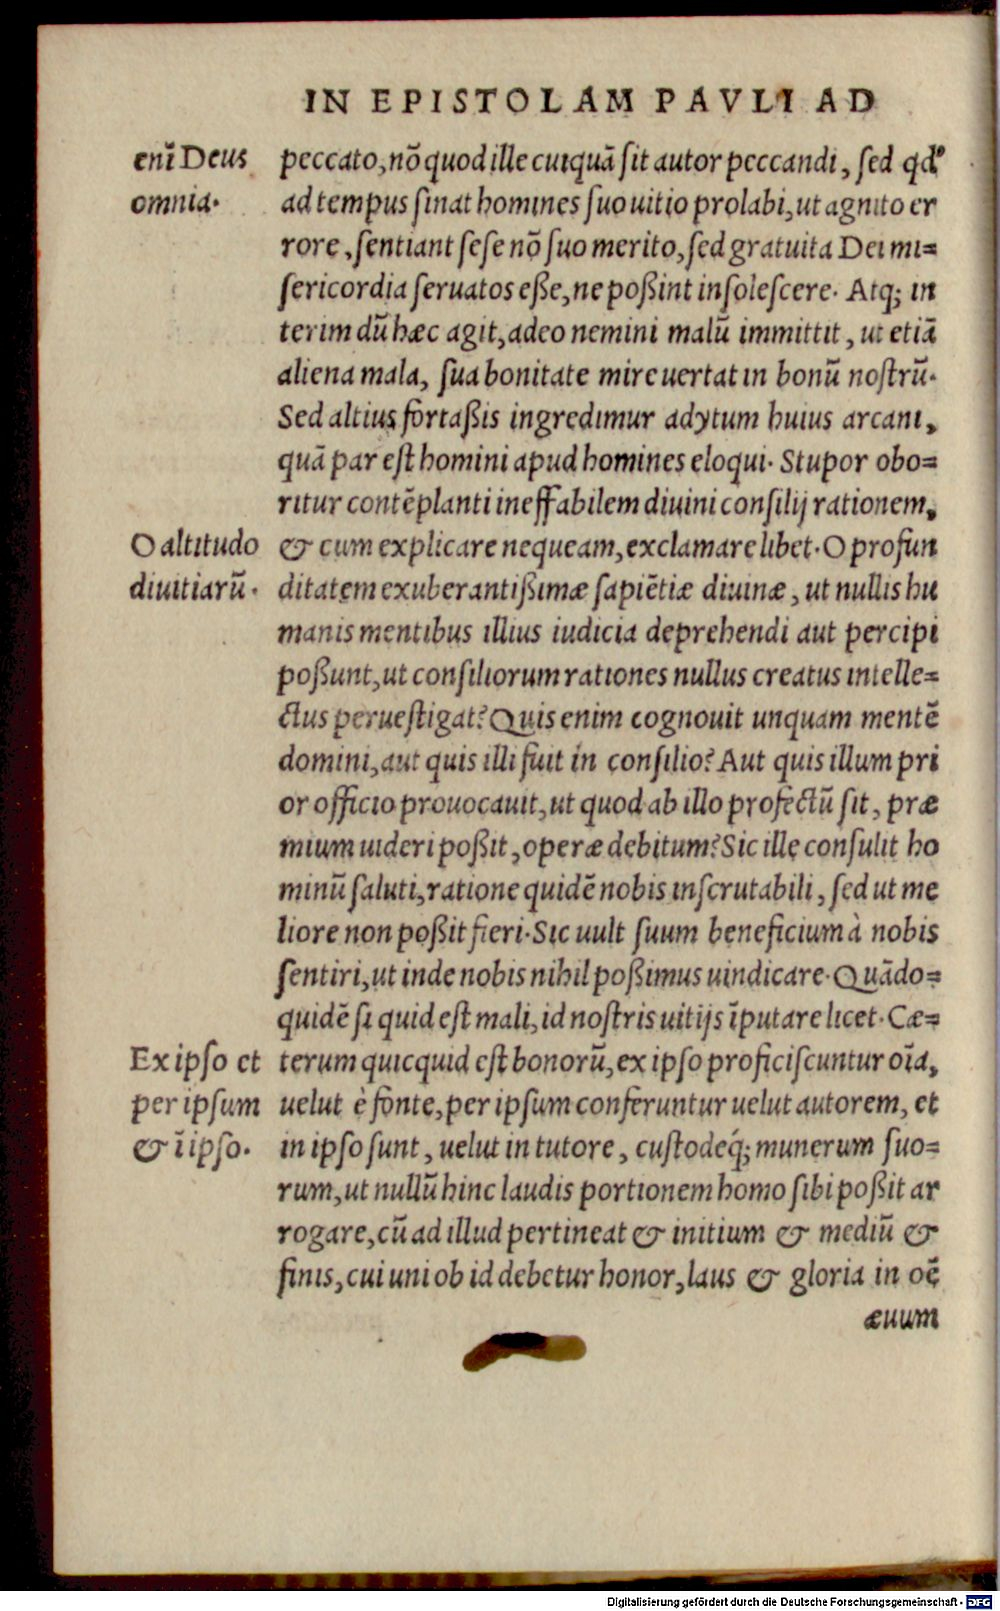 IN EPISTOLAM PAVLI AD
enī Deus
omnia.
peccato, nõ quod ille cuiquã sit autor peccandi, sed qđ
ad tempus sinat homines suo uitio prolabi, ut agnito er
rore, sentiant sese nõ suo merito, sed gratuita Dei mi=
sericordia seruatos eße, ne poßint insolescere. Atq; in
terim dũ hæc agit, adeo nemini malũ immittit, ut etiã
aliena mala, sua bonitate mire uertat in bonũ nostrũ.
Sed altius fortaßis ingredimur adytum huius arcani,
quã par est homini apud homines eloqui. Stupor obo=
ritur contẽplanti ineffabilem diuini consilij rationem,
O altitudo
diuitiarũ.
& cum explicare nequeam, exclamare libet. O profun
ditatem exuberantißimæ sapiẽtiæ diuinæ, ut nullis hu
manis mentibus illius iudicia deprehendi aut percipi
poßunt, ut consiliorum rationes nullus creatus intelle=
ctus peruestigat? Quis enim cognouit unquam mentẽ
domini, aut quis illi fuit in consilio? Aut quis illum pri
or officio prouocauit, ut quod ab illo profectũ sit, præ
mium uideri poßit, operæ debitum? Sic ille consulit ho
minũ saluti, ratione quidẽ nobis inscrutabili, sed ut me
liore non poßit fieri. Sic uult suum beneficium à nobis
sentiri, ut inde nobis nihil poßimus uindicare. Quãdo=
quidẽ si quid est mali, id nostris uitijs ĩputare licet. Cæ=
Ex ipso et
per ipsum
& ĩ ipso.
terum quicquid est bonorũ, ex ipso proficiscuntur oĩa,
uelut è fonte, per ipsum conferuntur uelut autorem, et
in ipso sunt, uelut in tutore, custodeq́; munerum suo=
rum, ut nullũ hinc laudis portionem homo sibi poßit ar
rogare, cũ ad illud pertineat & initium & mediũ &
finis, cui uni ob id debetur honor, laus & gloria in oẽ
æuum
Digitalisierung gefördert durch die Deutsche Forschungsgemeinschaft - DFG